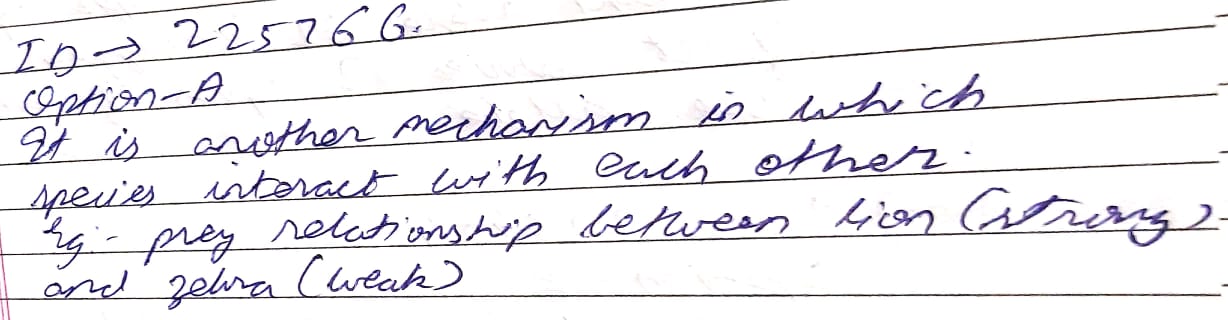 ID → 225766.
Option-A
It is another mechanism in which
species interact with each other.
Eg:- prey relationship between lion (strong)
and zebra (weak)